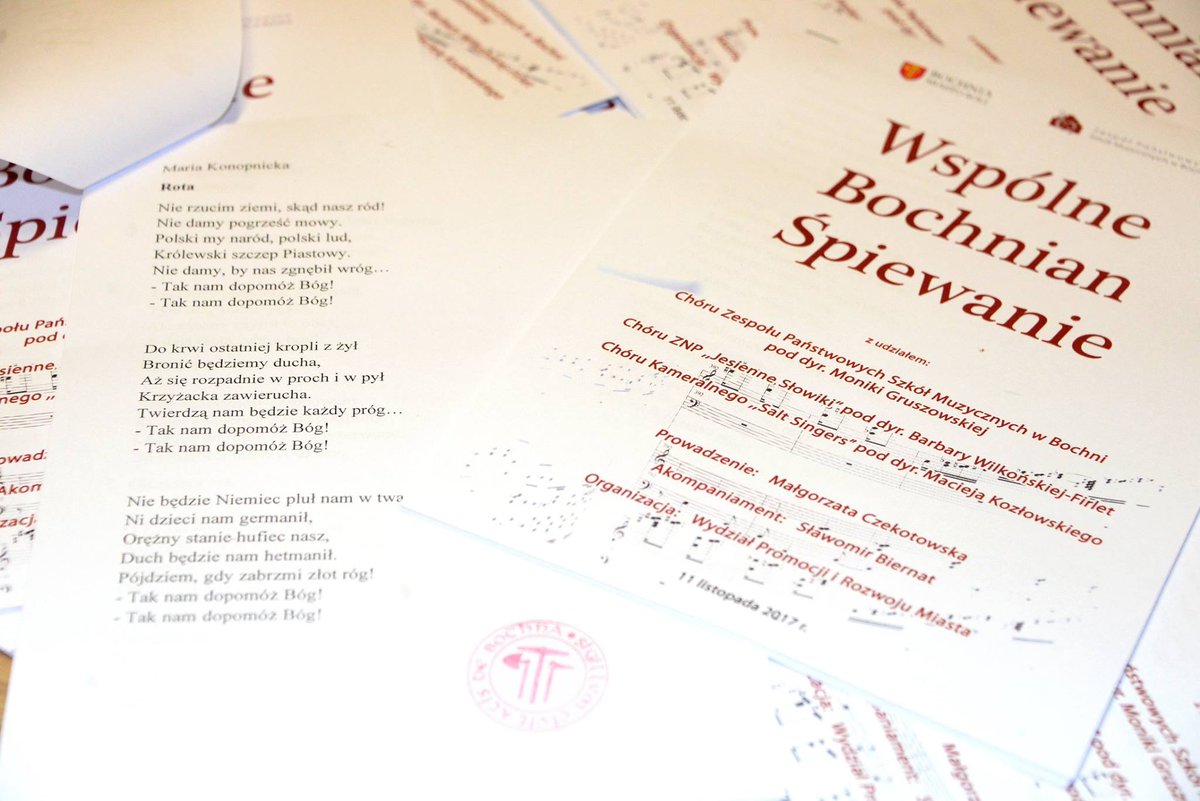 Maria Konopnicka
Rota
Nie rzucim ziemi, skąd nasz ród!
Nie damy pogrześć mowy.
Polski my naród, polski lud,
Królewski szczep Piastowy.
Nie damy, by nas zgnębił wróg…
- Tak nam dopomóż Bóg!
- Tak nam dopomóż Bóg!
Do krwi ostatniej kropli z żył
Bronić będziemy ducha,
Aż się rozpadnie w proch i w pył
Krzyżacka zawierucha.
Twierdzą nam będzie każdy próg…
- Tak nam dopomóż Bóg!
- Tak nam dopomóż Bóg!
Nie będzie Niemiec pluł nam w twa
Ni dzieci nam germanił,
Orężny stanie hufiec nasz,
Duch będzie nam hetmanił.
Pójdziem, gdy zabrzmi złot róg!
- Tak nam dopomóż Bóg!
- Tak nam dopomóż Bóg!
BOCHNIA
Wspólne
Bochnian
Śpiewanie
z udziałem:
Chóru Zespołu Państwowych Szkół Muzycznych w Bochni
pod dyr. Moniki Gruszowskiej
Chóru ZNP „Jesienne Słowiki” pod dyr. Barbary Wilkońskiej-Firlet
Chóru Kameralnego „Salt Singers” pod dyr. Macieja Kozłowskiego
Prowadzenie: Małgorzata Czekotowska
Akompaniament: Sławomir Biernat
Organizacja: Wydział Promocji i Rozwoju Miasta
11 listopada 2017 r.